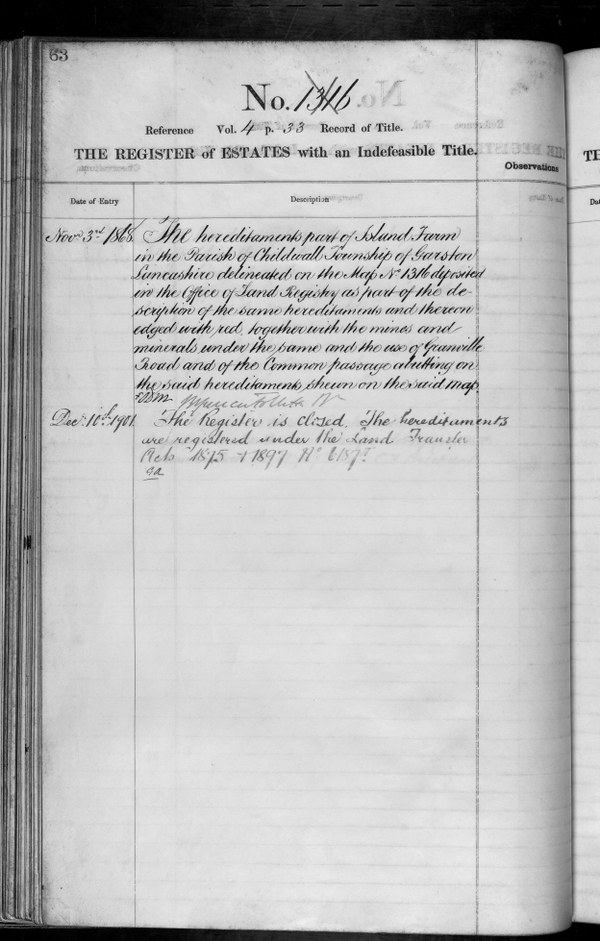 63
No. 1316
Reference Vol. 4 p. 33 Record of Title.
THE REGISTER of ESTATES with an Indefeasible Title.
Observations
Date of Entry
Description
Novr 3rd 1868. The hereditaments part of Island Farm
in the Parish of Childwall Township of Garston
Lancashire delineated on the Map No 1316 deposited
in the Office of Land Registry as part of the de-
scription of the same hereditaments and thereon
edged with red, together with the mines and
minerals under the same and the use of Granville
Road and of the Common passage abutting on
the said hereditaments shewn on the said map
Decr 10th 1901. The Register is closed. The hereditaments
are registered under the Land Transfer
Acts 1875 + 1897 No
TH
Da